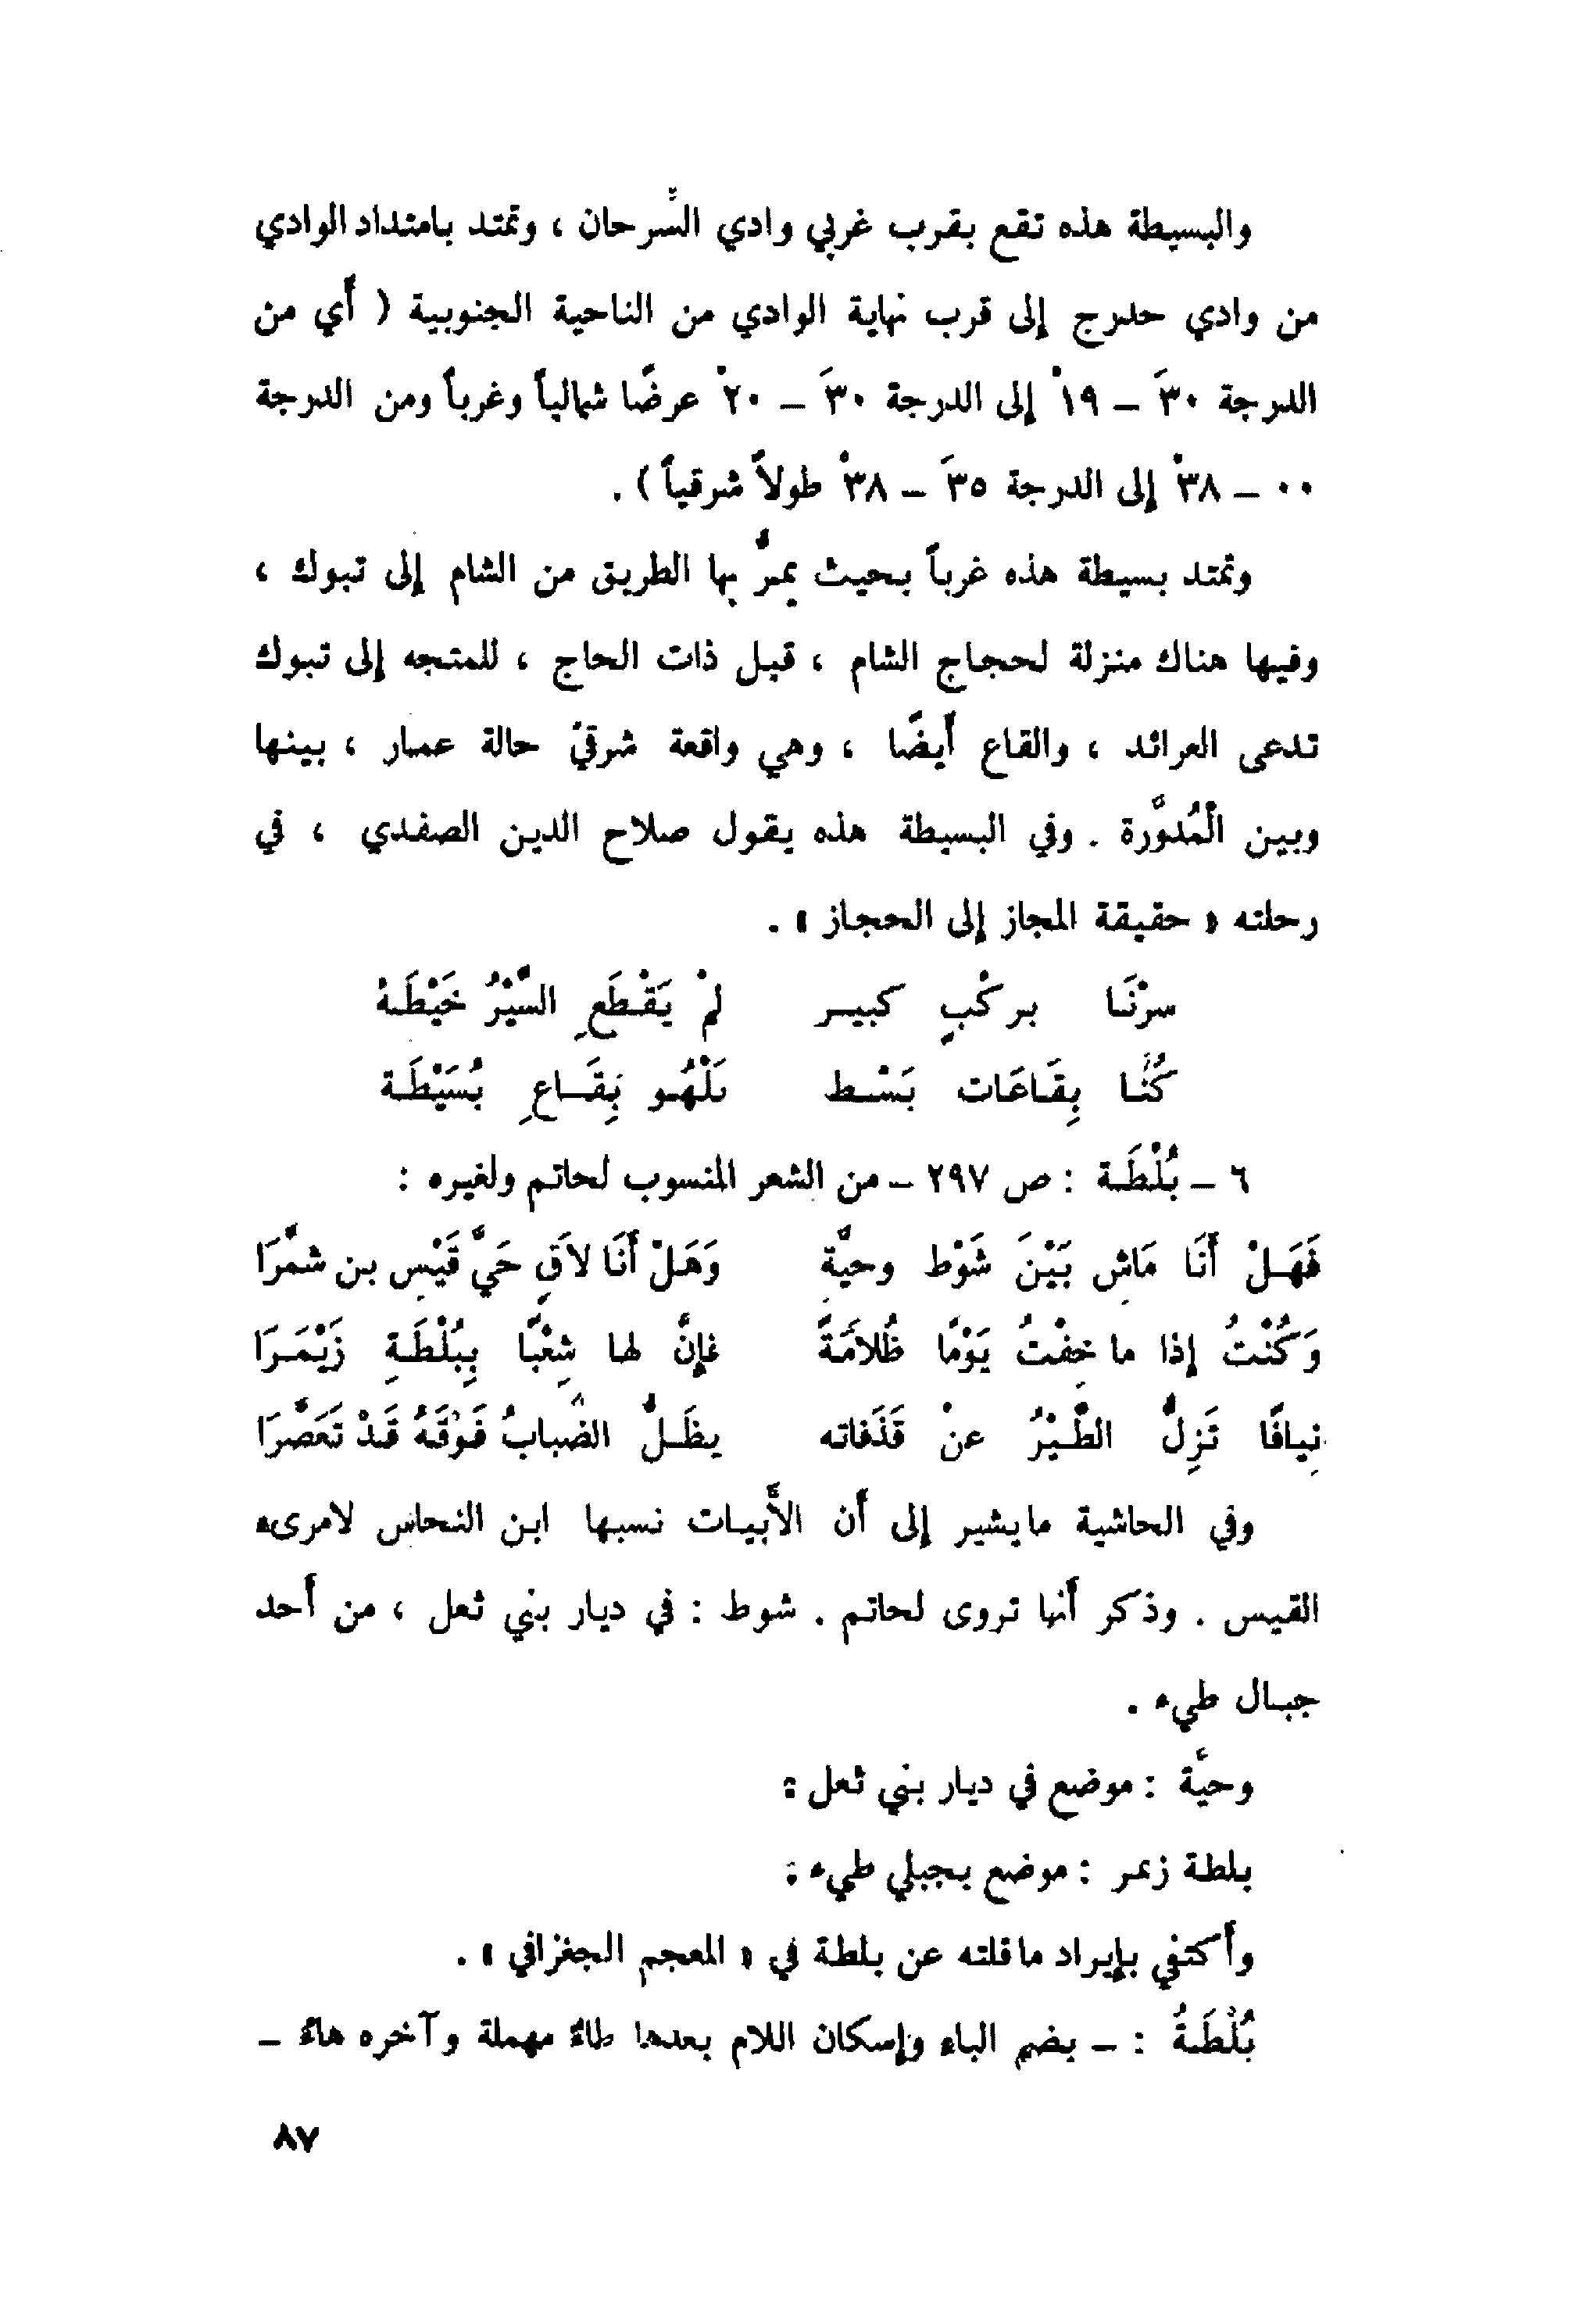 والبسيطة هذه تقع بقرب غربي وادي السِّرحان ، وتمتد بامتداد الوادي
من وادي حدرج إلى قرب نهاية الوادي من الناحية الجنوبية ( أي من
الدرجة ٣٠َ – ١٩ْ إلى الدرجة ٣٠َ – ٢٠ْ عرضًا شمالياً وغرباً ومن الدرجة
٠٠ – ٣٨ْ إلى الدرجة ٣٥َ – ٣٨ْ طولاً شرقياً ) .
وتمتد بسيطة هذه غرباً بحيث يمرُّ بها الطريق من الشام إلى تبوك ،
وفيها هناك منزلة لحجاج الشام ، قبل ذات الحاج ، للمتجه إلى تبوك
تدعى العرائد ، والقاع أيضًا ، وهي واقعة شرقيّ حالة عمار ، بينها
وبين الْمُدوَّرة . وفي البسيطة هذه يقول صلاح الدين الصفدي ، في
رحلته « حقيقة المجاز إلى الحجاز » .
سرْنَا بركْبٍ كبيـر لمْ يَقْطَعِ السَّيْرُ خَيْطَهْ
كُنَّا بِقَاعَات بَسْط نَلْهُو بِقَاعِ بُسَيْطَة
٦ – بُلْطَة : ص ٢٩٧ – من الشعر المنسوب لحاتم ولغيره :
فَهَلْ أَنَا مَاشٍ بَيْنَ شَوْط وحيَّةٍ وَهَلْ أَنَا لاَقٍ حَيَّ قَيْسِ بن شمَّرَا
وَكُنْتُ إذا ما خِفْتُ يَوْمًا ظُلاَمَةً فإنَّ لها شِعْبًا بِبُلْطَةِ زَيْمَرَا
نِيافًا تَزِلُّ الطَّيْرُ عنْ قَذَفاته يظَلُّ الضَّبابُ فَوْقَهُ قَدْ تَعَصَّرَا
وفي الحاشية مايشير إلى أن الأَبيات نسبها ابن النحاس لامرىء
القيس . وذكر أنها تروى لحاتم . شوط : في ديار بني ثعل ، من أحد
جبال طيء .
وحيَّة : موضع في ديار بني ثعل :
بلطة زيمر : موضع بجبلي طيء :
وأكتفي بإيراد ماقلته عن بلطة في « المعجم الجغرافي » .
بُلْطَةُ : – بضم الباء وإسكان اللام بعدها طاءٌ مهملة وآخره هاءٌ –
٨٧